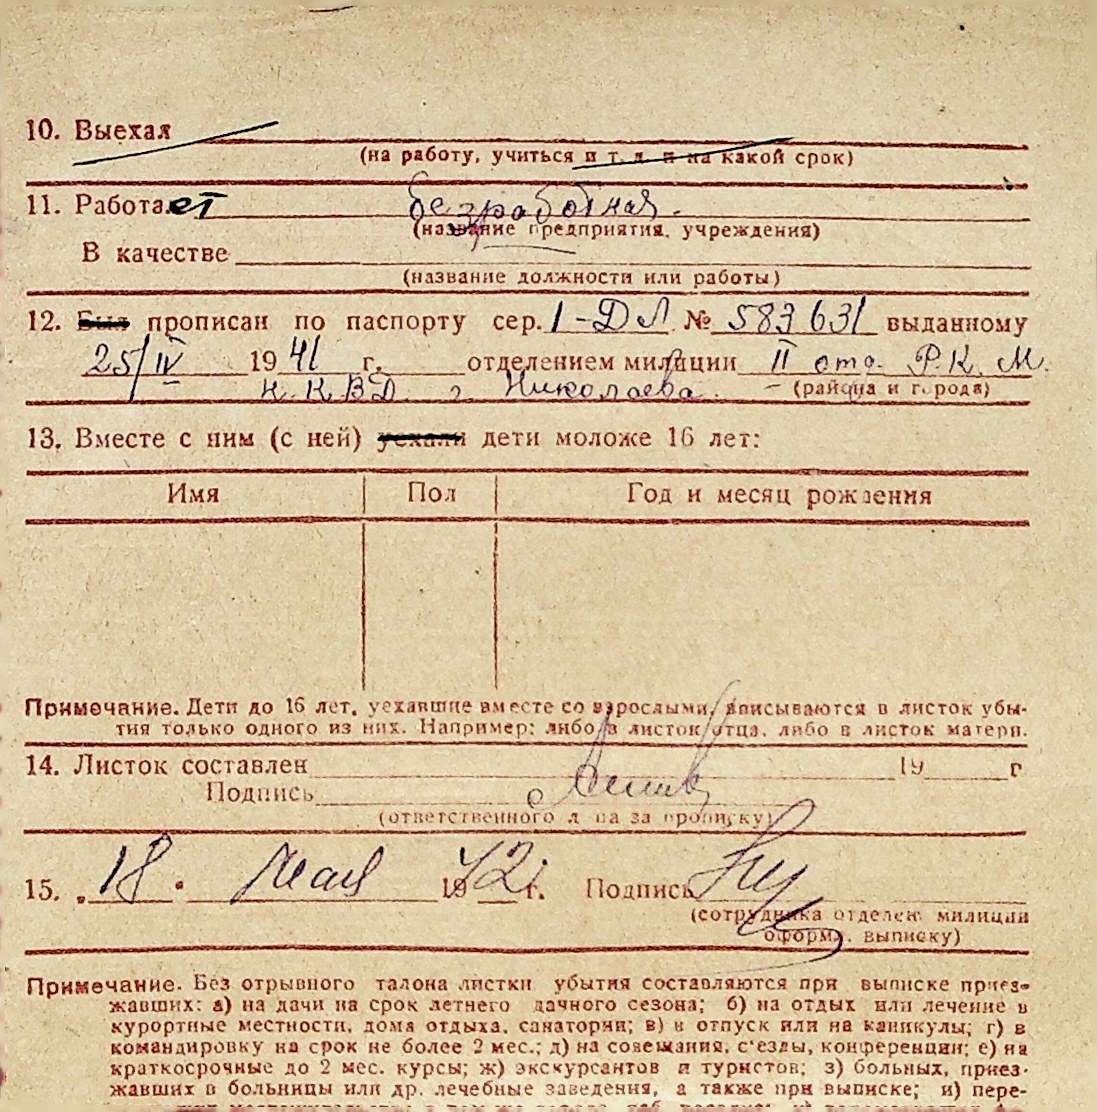 10. Выехал
(на работу, учиться и т. д. и на какой срок)
11. Работает безработная.
(название предприятия, учреждения)
В качестве
(название должности или работы)
12. Был прописан по паспорту сер. I-ДЛ № 583631 выданному
25/IV 1941 г. отделением милиции II отд. Р.К.М.
Н.К.В.Д. г. Николаева. (района и города)
13. Вместе с ним (с ней) уехали дети моложе 16 лет:
Имя Пол Год и месяц рождения
Примечание. Дети до 16 лет, уехавшие вместе со взрослыми, вписываются в листок убы-
тия только одного из них. Например: либо в листок отца, либо в листок матери.
14. Листок составлен 19 г
Подпись
(ответственного лица за прописку)
15. „18" Мая 1942 г. Подпись
(сотрудника отделен. милиции
оформ. выписку)
Примечание. Без отрывного талона листки убытия составляются при выписке приез-
жавших: а) на дачи на срок летнего дачного сезона; б) на отдых или лечение в
курортные местности, дома отдыха, санатории; в) в отпуск или на каникулы; г) в
командировку на срок не более 2 мес.; д) на совещания, с'езды, конференции; е) на
краткосрочные до 2 мес. курсы; ж) экскурсантов и туристов; з) больных, приез-
жавших в больницы или др. лечебные заведения, а также при выписке; и) пере-